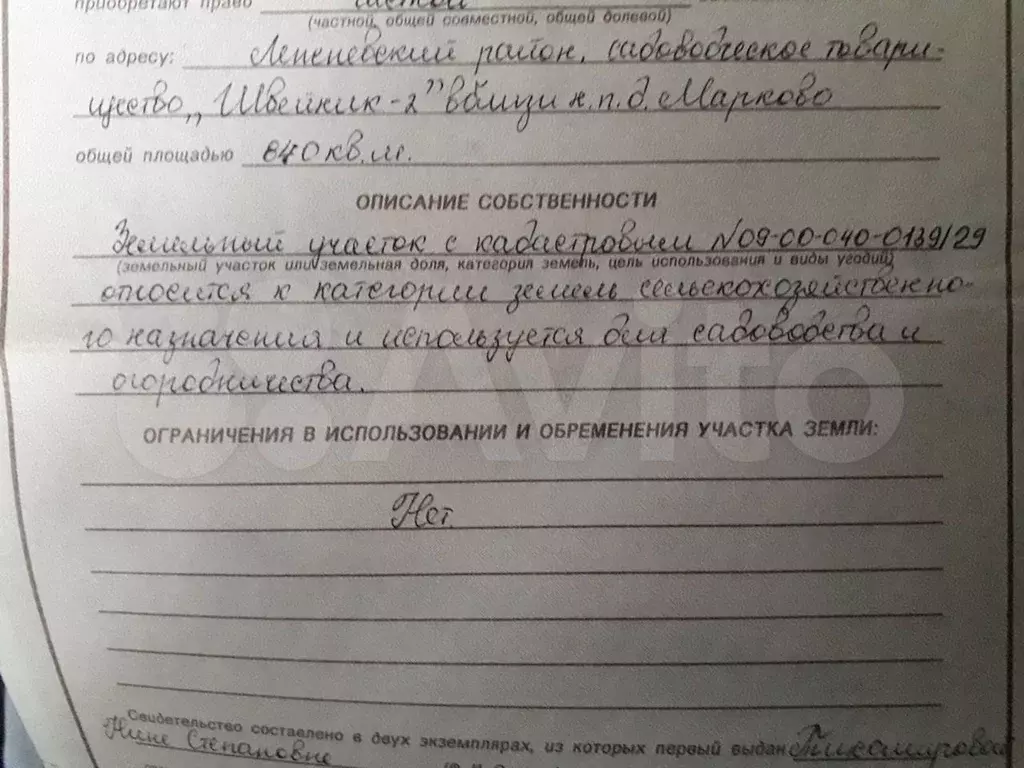 приобретают право частной
(частной, общей совместной, общей долевой)
по адресу: Ленинский район, садоводческое товари-
щество „Швейник-2" вблизи н.п.д. Марково
общей площадью 640 кв.м.
ОПИСАНИЕ СОБСТВЕННОСТИ
Земельный участок с кадастровым N09-00-040-0139/29
(земельный участок или земельная доля, категория земель, цель использования и виды угодий)
относится к категории земель сельскохозяйственно-
го назначения и используется для садоводства и
огородничества.
ОГРАНИЧЕНИЯ В ИСПОЛЬЗОВАНИИ И ОБРЕМЕНЕНИЯ УЧАСТКА ЗЕМЛИ:
Нет
Свидетельство составлено в двух экземплярах, из которых первый выдан
Нине Степановне
Avito